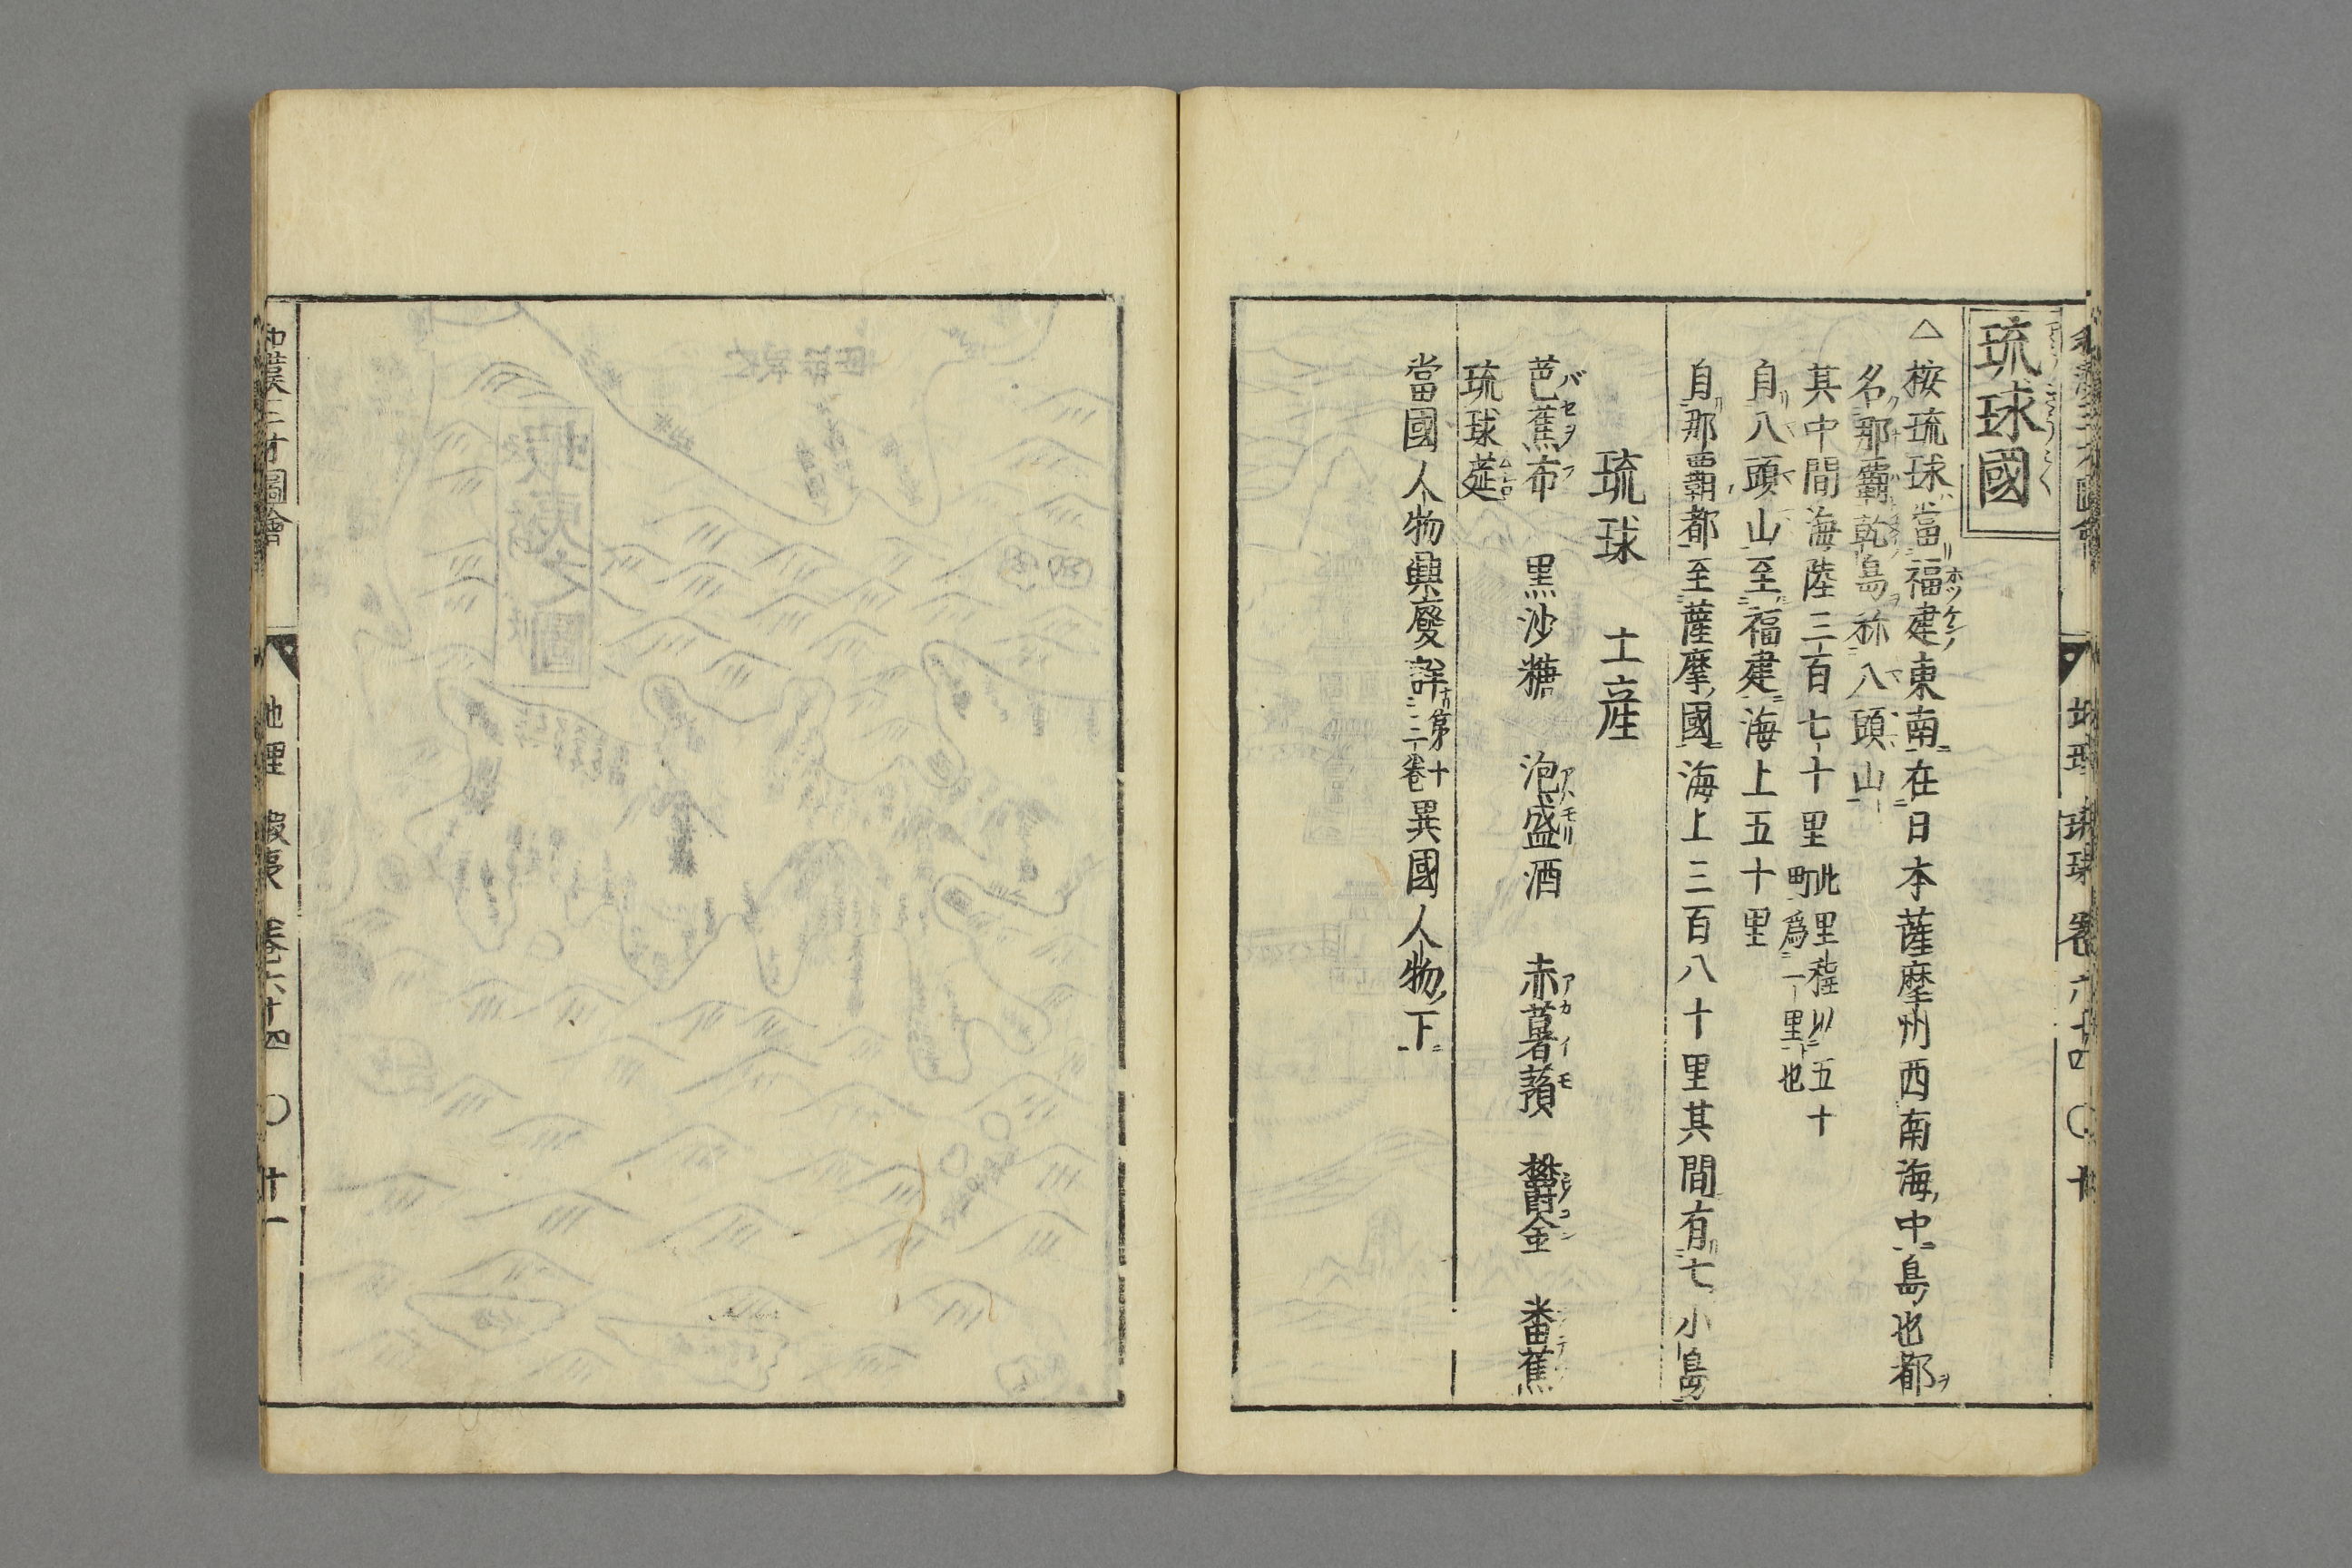 和漢三才圖會
地理 琉球 卷六十四 〇 十
琉球國
△按琉球當福建東南在日本薩摩州西南海中島也都
名那霸乾島称八頭山
其中間海陸三百七十里此里程以五十町爲一里也
自八頭山至福建海上五十里
自那霸都至薩摩國海上三百八十里其間有七小島
琉球 土產
芭蕉布 黒沙糖 泡盛酒 赤薯蕷 欝金 番蕉
琉球莚
當國人物興廢詳第十三卷異國人物下
和漢三才圖會
地理 蝦夷 卷六十四 〇 廿一